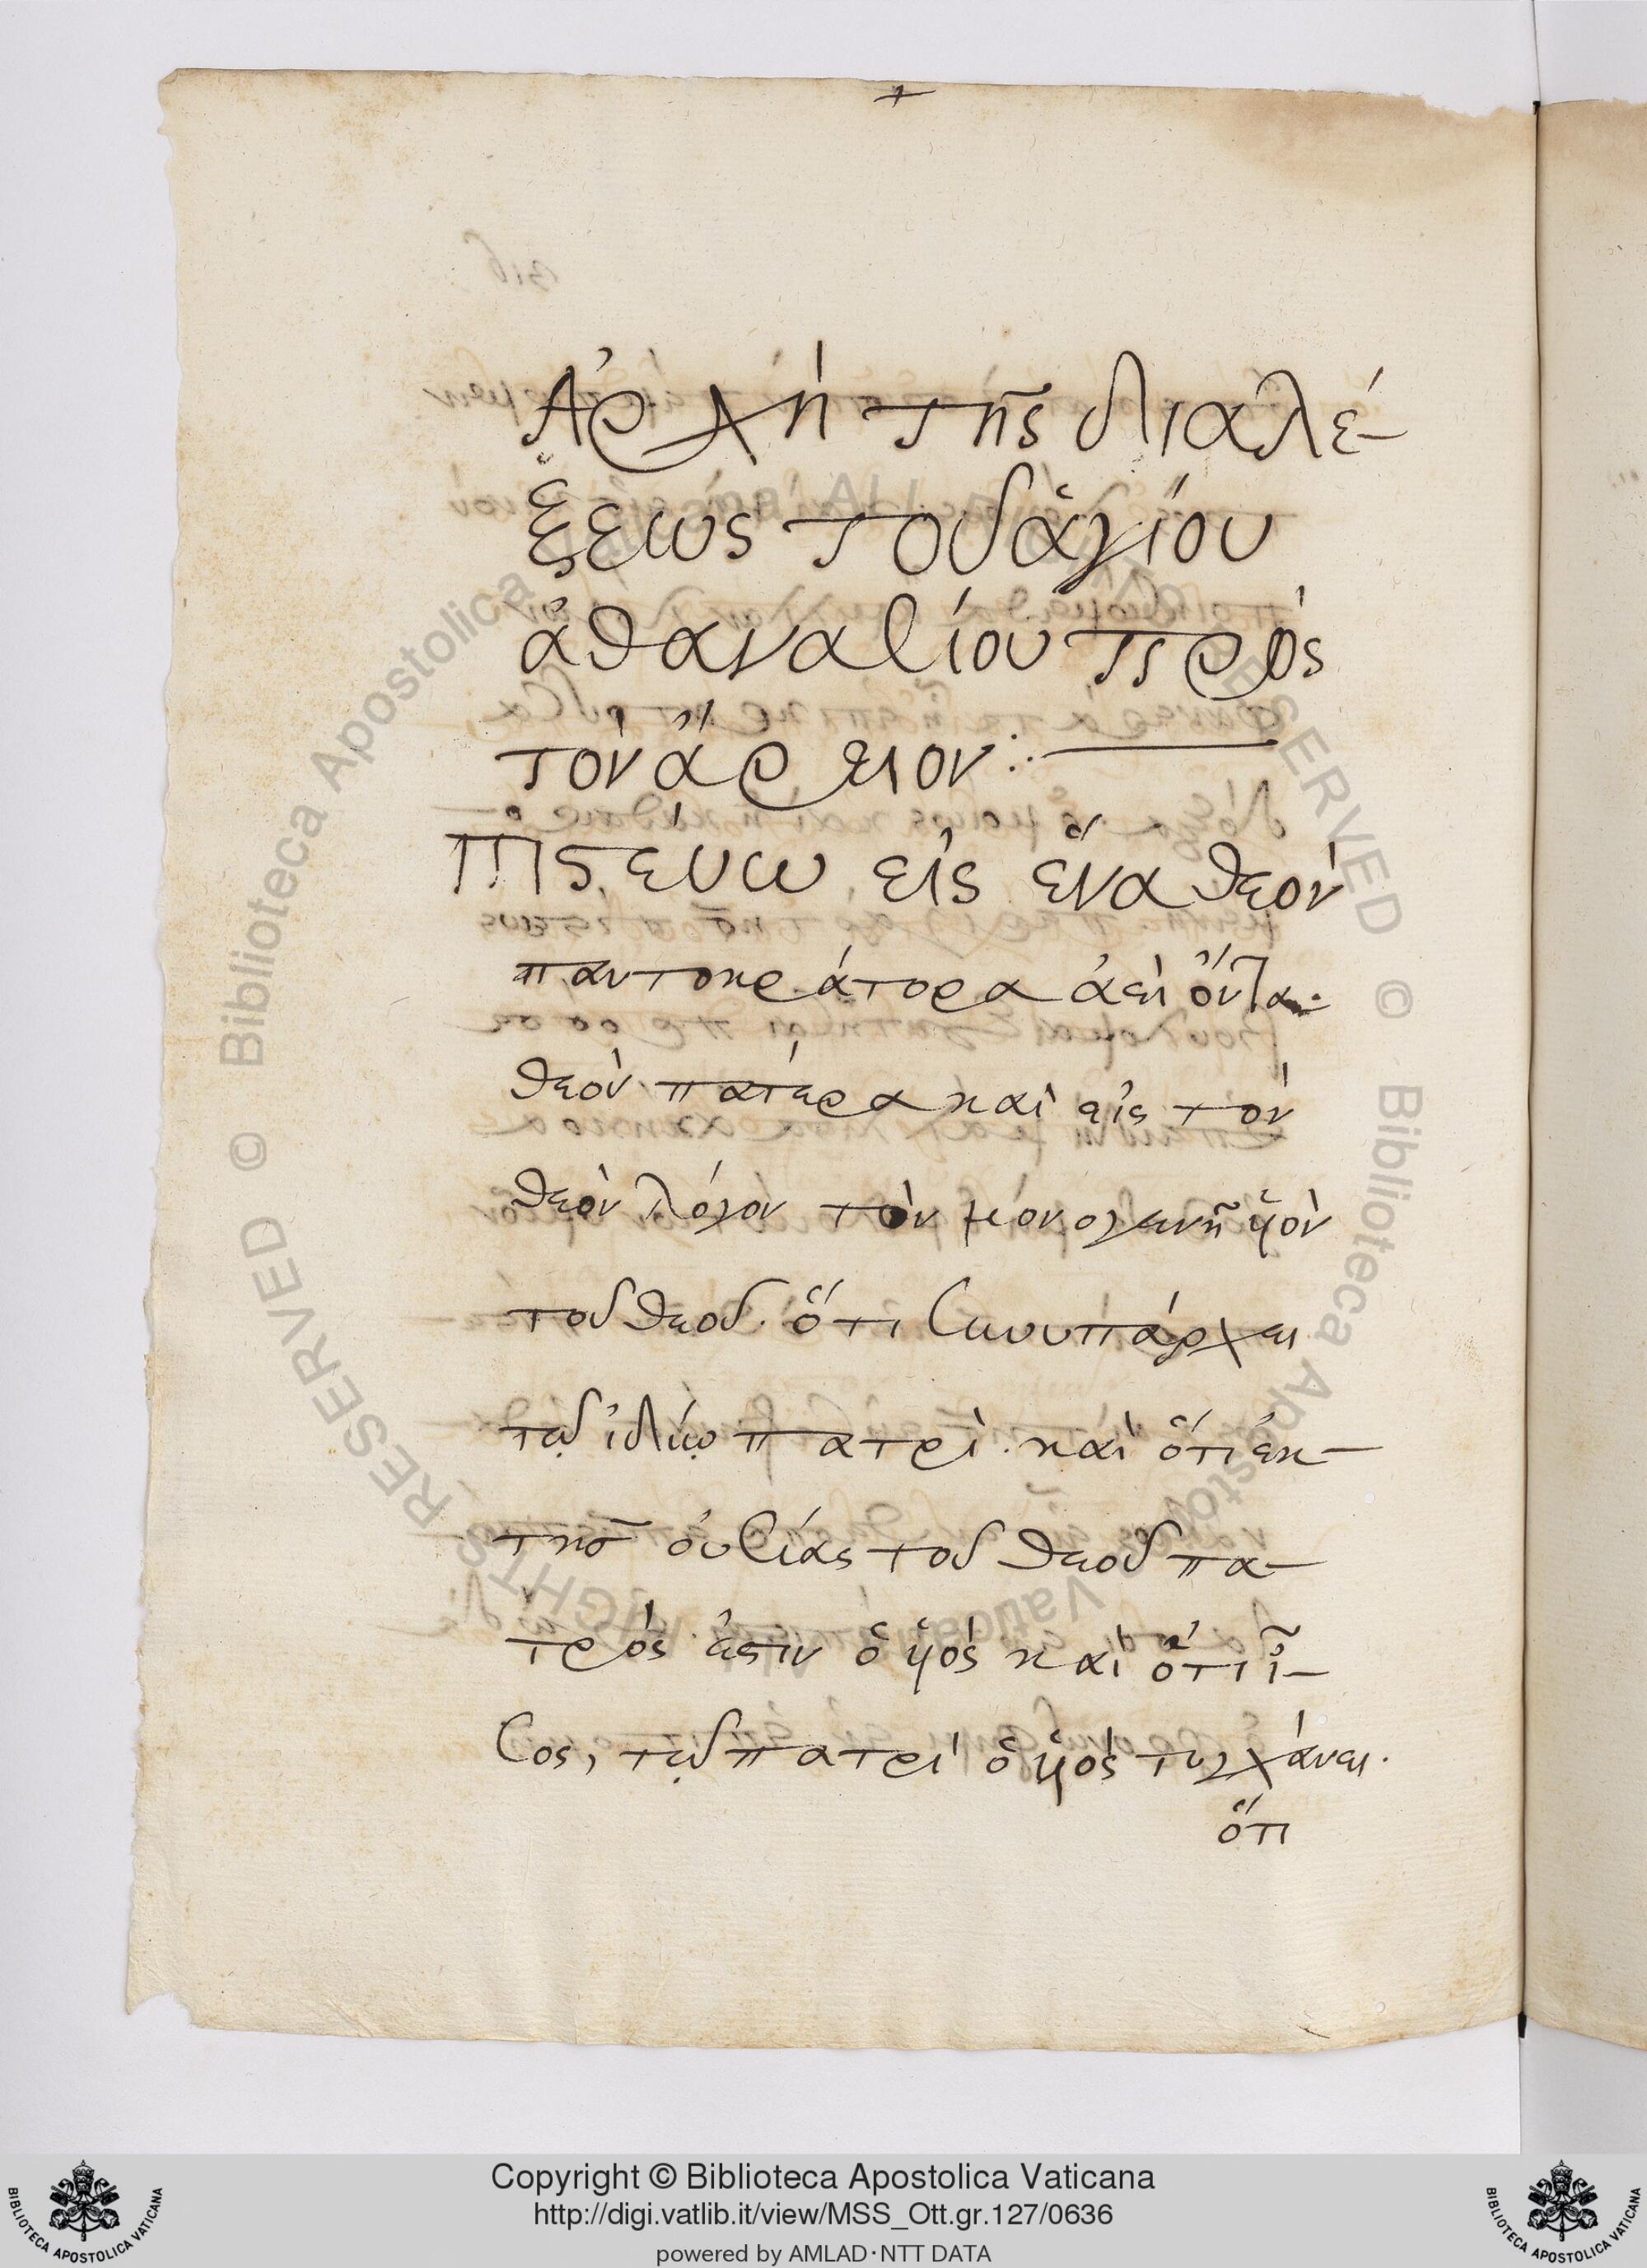 +
Ἀρχὴ τῆς διαλέ-
ξεως τοῦ ἁγίου
ἀθανασίου πρὸς
τὸν ἄρειον:·
Πιστεύω εἰς ἕνα θεὸν
παντοκράτορα ἀεὶ ὄντα·
θεὸν πατέρα καὶ εἰς τὸν
θεὸν λόγον τὸν μονογενῆ ὑὸν
τοῦ θεοῦ. ὅτι συνυπάρχει
τῷ ἰδίῳ πατρὶ. καὶ ὅτι ἐκ-
τῆσ οὐσίας τοῦ θεοῦ πα-
τρὸς ἐστιν ὁ ὑὸς καὶ ὅτι ἶ-
σος, τῷ πατρὶ ὁ ὑὸς τυγχάνει.
ὅτι
© Biblioteca Apostolica Vaticana ALL RIGHTS RESERVED © Biblioteca Apostolica Vaticana RIGHTS RESERVED
Copyright © Biblioteca Apostolica Vaticana
http://digi.vatlib.it/view/MSS_Ott.gr.127/0636
powered by AMLAD·NTT DATA
BIBLIOTECA APOSTOLICA VATICANA
BIBLIOTECA APOSTOLICA VATICANA